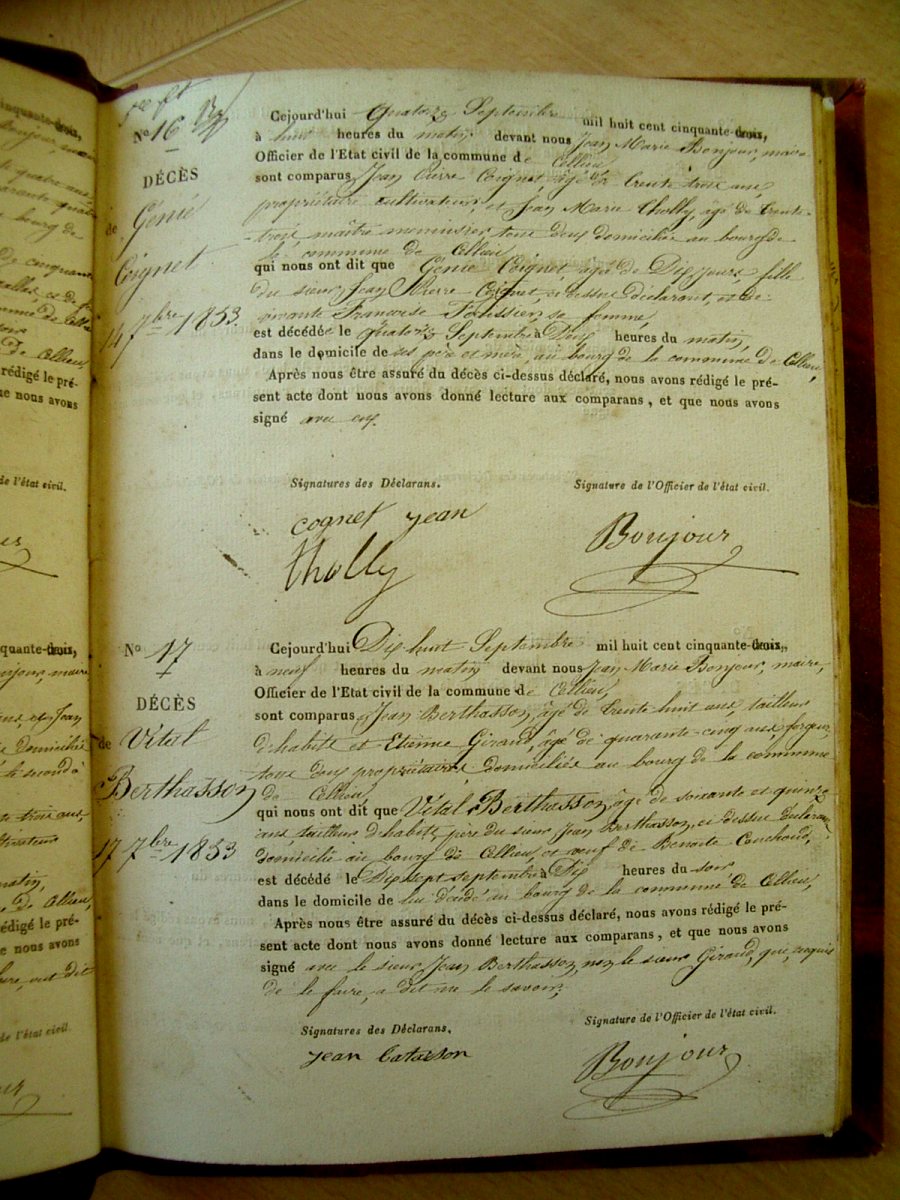 No 16
DÉCÈS
de Génie
Coignet
14 7bre 1853
Cejourd'hui Quatorze Septembre mil huit cent cinquante-trois,
à huit heures du matin devant nous Jean Marie Bonjour, maire
Officier de l'Etat civil de la commune de Cellieu
sont comparus Jean Pierre Coignet, âgé de trente trois ans
propriétaire cultivateur, et Jean Marie Tholly, âgé de trente-
trois, maître menuisier tous deux domiciliés au bourg de
la commune de Cellieu
qui nous ont dit que Génie Coignet âgée de Dix jours, fille
du sieur Jean Pierre Coignet, ci dessus déclarant, et de
vivante Françoise sa femme,
est décédée le quatorze Septembre à Deux heures du matin,
dans le domicile de ses père et mère, au bourg de la commune de Cellieu,
Après nous être assuré du décès ci-dessus déclaré, nous avons rédigé le pré-
sent acte dont nous avons donné lecture aux comparans, et que nous avons
signé avec eux.
Signatures des Déclarans.
Signature de l'Officier de l'état civil.
cognet jean
tholly
Bonjour
No 17
DÉCÈS
de Vital
Berthasson
17 7bre 1853
Cejourd'hui Dix huit Septembre mil huit cent cinquante-trois,
à neuf heures du matin devant nous Jean Marie Bonjour, maire,
Officier de l'Etat civil de la commune de Cellieu,
sont comparus Jean Berthasson, âgé de trente huit ans, tailleur
d'habits et Etienne Giraud, âgé de quarante-cinq ans, forgeur,
tous deux propriétaires domiciliés au bourg de la commune
de Cellieu,
qui nous ont dit que Vital Berthasson, âgé de soixante et quinze
ans, tailleur d'habits, père du sieur Jean Berthasson, ci dessus déclarant
domicilié au bourg de Cellieu, et veuf de Benoite Couchoud,
est décédé le Dix sept septembre à Dix heures du soir
dans le domicile de lui décédé au bourg de la commune de Cellieu,
Après nous être assuré du décès ci-dessus déclaré, nous avons rédigé le pré-
sent acte dont nous avons donné lecture aux comparans, et que nous avons
signé avec le sieur Jean Berthasson, non le sieur Giraud, qui, requis
de le faire, a dit ne le savoir,
Signatures des Déclarans.
Signature de l'Officier de l'état civil.
jean batasson
Bonjour